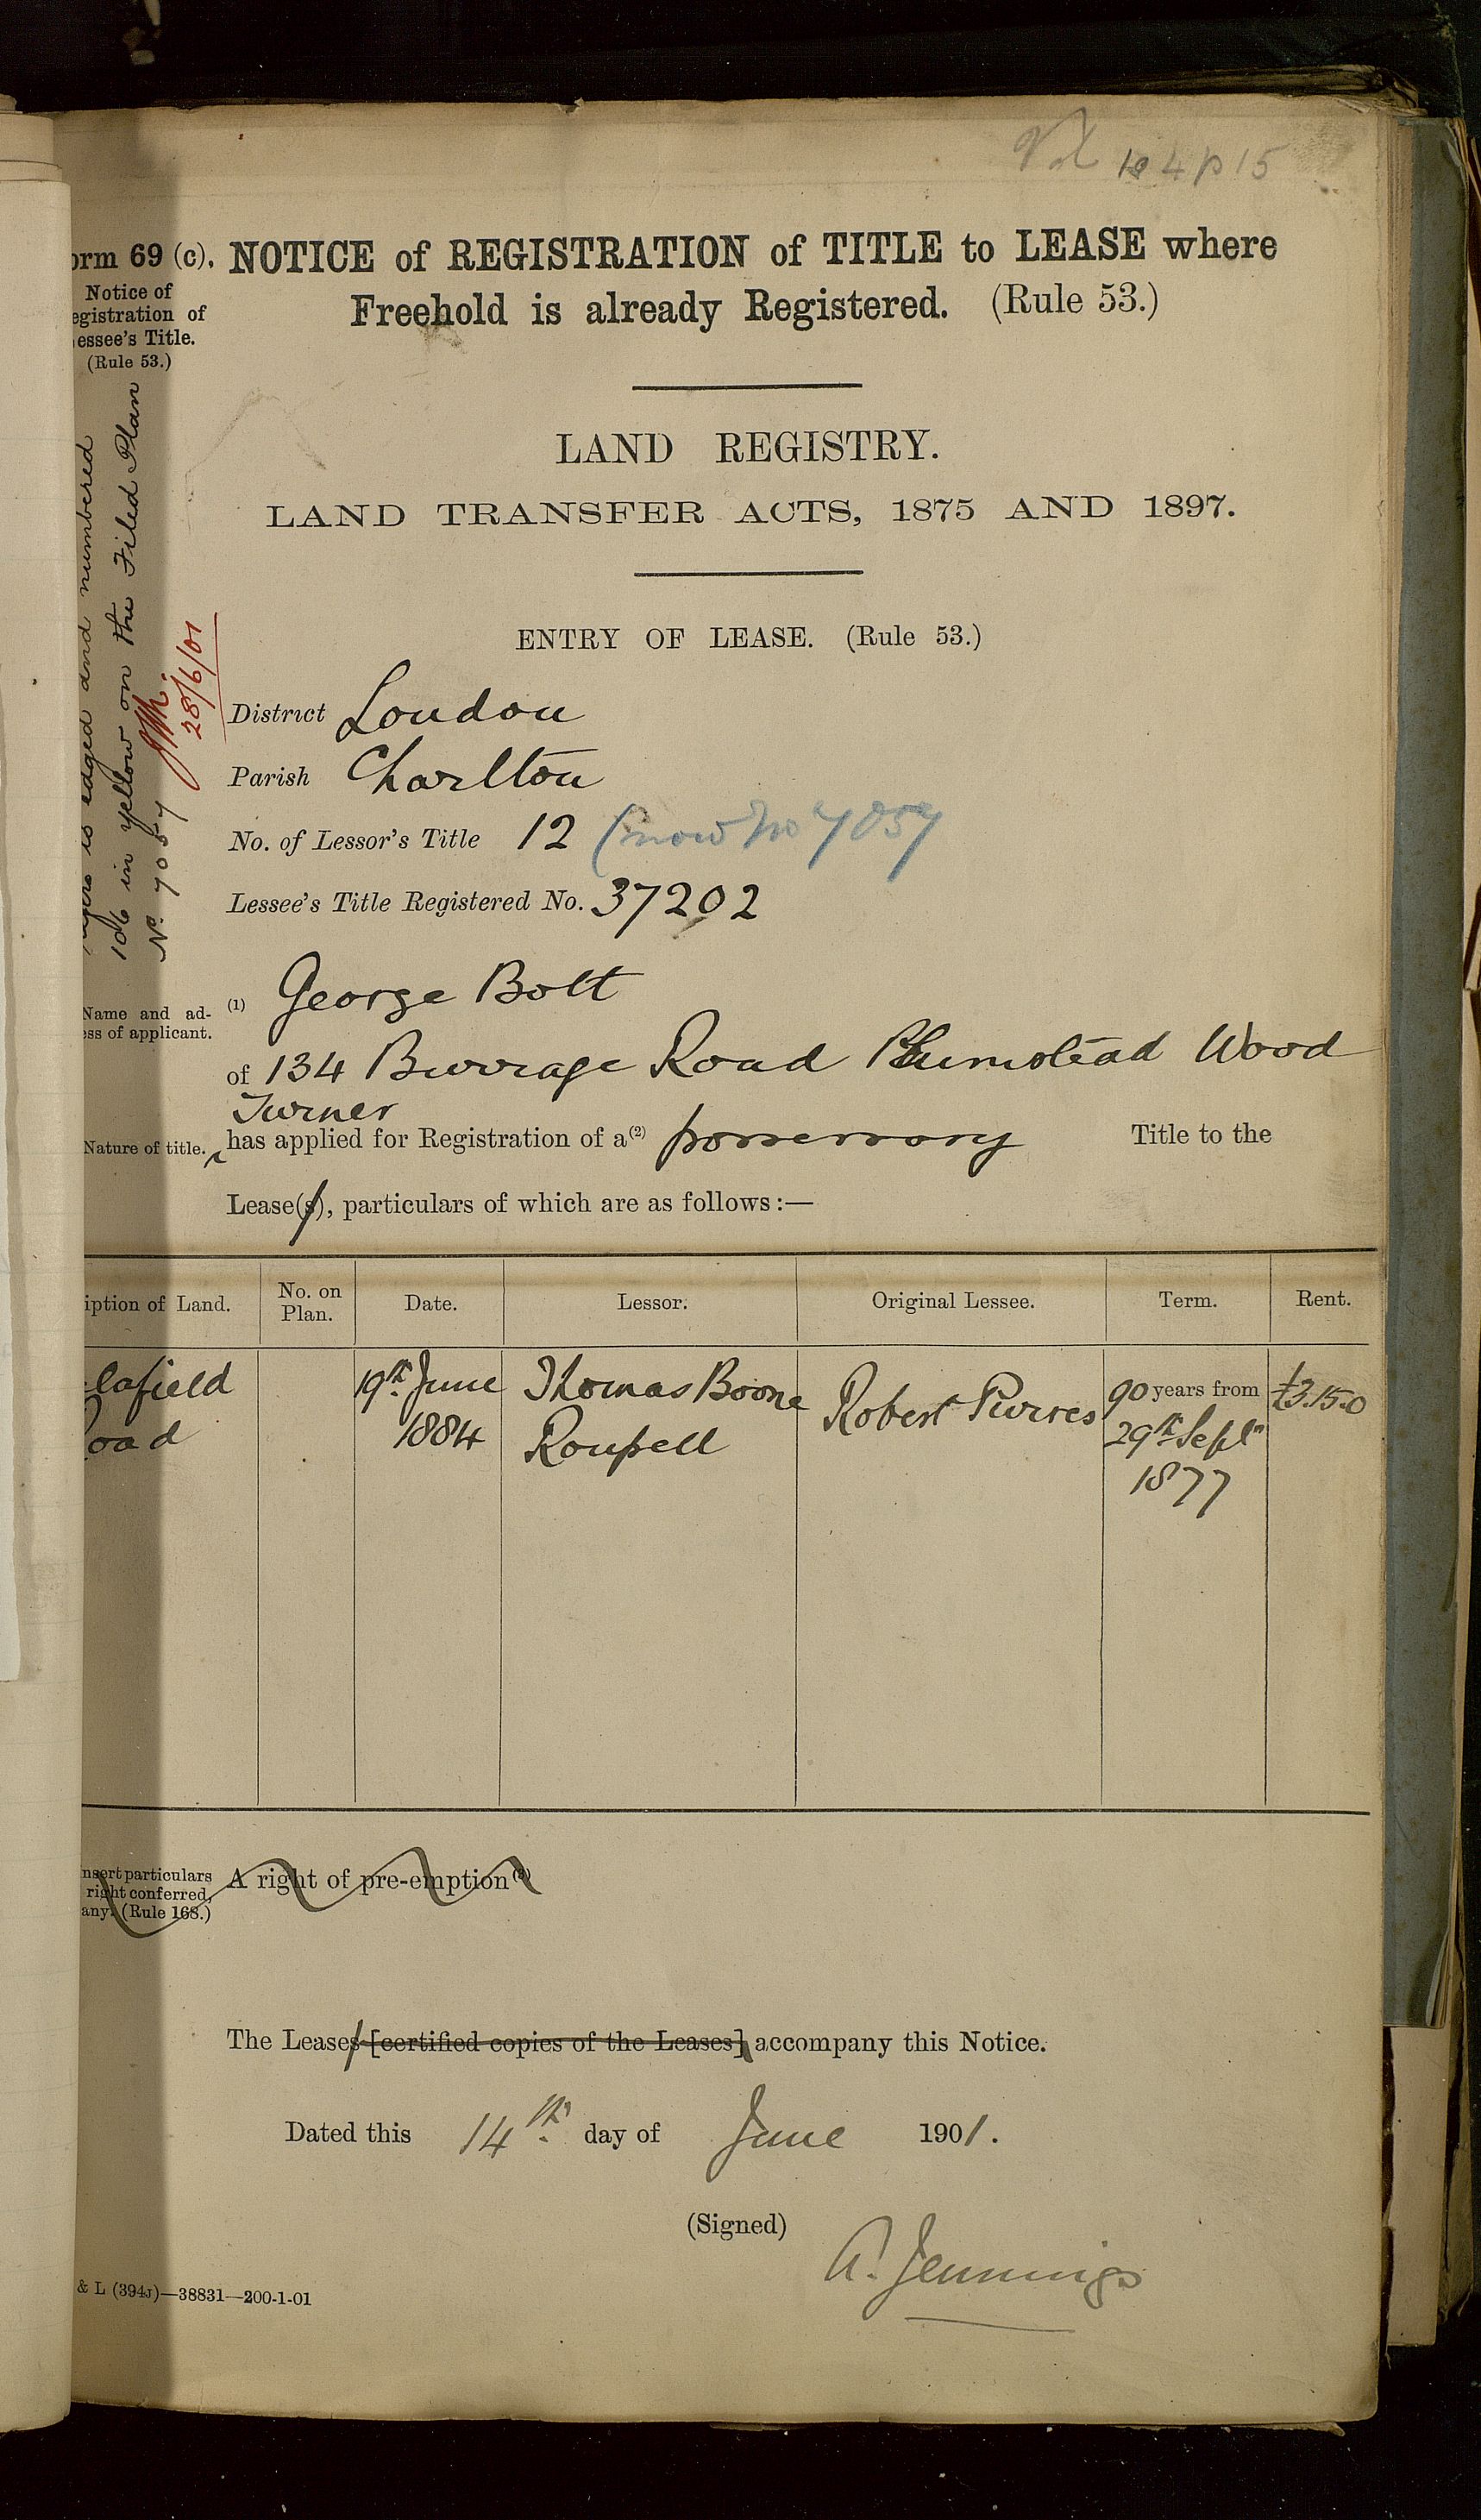 Vol 104 p 15
orm 69 (c). NOTICE of REGISTRATION of TITLE to LEASE where
Freehold is already Registered. (Rule 53.)
Notice of
egistration of
essee's Title.
(Rule 53.)
is edged and numbered
106 in yellow on the Filed Plan
No. 7057
28/6/01
LAND REGISTRY.
LAND TRANSFER ACTS, 1875 AND 1897.
ENTRY OF LEASE. (Rule 53.)
District London
Parish Charlton
No. of Lessor's Title 12 (now No 7057
Lessee's Title Registered No. 37202
Name and ad-
ess of applicant.
(1) George Bolt
of 134 Burrage Road Plumstead Wood
Turner
Nature of title. has applied for Registration of a(2) possessory Title to the
Lease(s), particulars of which are as follows:—
iption of Land. No. on Plan. Date. Lessor. Original Lessee. Term. Rent.
lafield 19th June Thomas Boone Robert Purves 90 years from £3.15.0
oad 1884 Roupell 29th Septr
1877
nsert particulars
right conferred,
any. (Rule 168.)
A right of pre-emption(3)
The Leases [certified copies of the Leases] accompany this Notice.
Dated this 14th day of June 1901.
(Signed)
A. Jennings
& L (394J)—38831—200-1-01